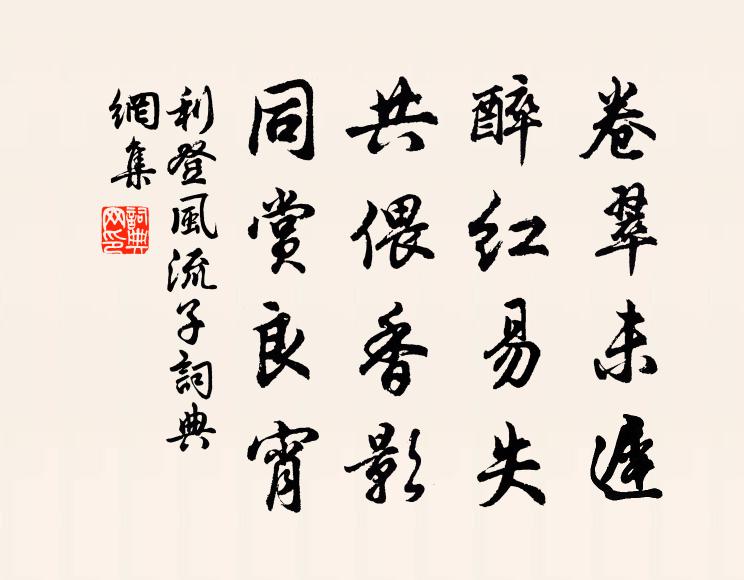 卷翠未遲
醉紅易失
共偎香影
同賞良宵
利登風流子詞典
網集
詞典
网印